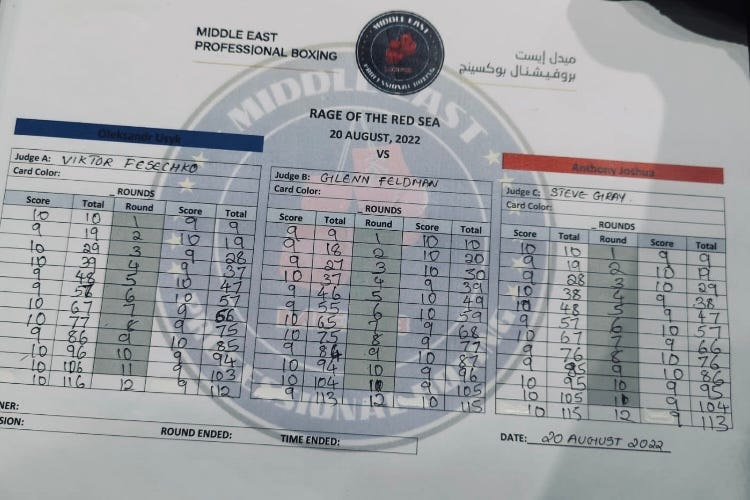 MIDDLE EAST
PROFESSIONAL BOXING
MIDDLE EAST
PROFESSIONAL BOXING
ميدل إيست
بروفيشنال بوكسينج
RAGE OF THE RED SEA
20 AUGUST, 2022
VS
Oleksandr Usyk
Judge A: VIKTOR FESECHKO
Card Color:
_ ROUNDS
Score Total Round Score Total
10 10 1 9 9
9 19 2 10 19
10 29 3 9 28
10 39 4 9 37
9 48 5 10 47
9 57 6 10 57
10 67 7 9 66
10 77 8 9 75
9 86 9 10 85
10 96 10 9 94
10 106 11 9 103
10 116 12 9 112
Judge B: GLENN FELDMAN
Card Color:
_ ROUNDS
Score Total Round Score Total
9 9 1 10 10
9 18 2 10 20
9 27 3 10 30
10 37 4 9 39
9 46 5 10 49
9 55 6 10 59
10 65 7 9 68
10 75 8 9 77
9 84 9 10 87
10 94 10 9 96
10 104 11 9 105
9 113 12 10 115
Anthony Joshua
Judge C: STEVE GRAY
Card Color:
_ ROUNDS
Score Total Round Score Total
10 10 1 9 9
9 19 2 10 19
9 28 3 10 29
10 38 4 9 38
10 48 5 9 47
9 57 6 10 57
10 67 7 9 66
9 76 8 10 76
9 85 9 10 86
10 95 10 9 95
10 105 11 9 104
10 115 12 9 113
NER:
SION:
ROUND ENDED: TIME ENDED:
DATE: 20 AUGUST 2022
MIDDLE EAST
PROFESSIONAL BOXING